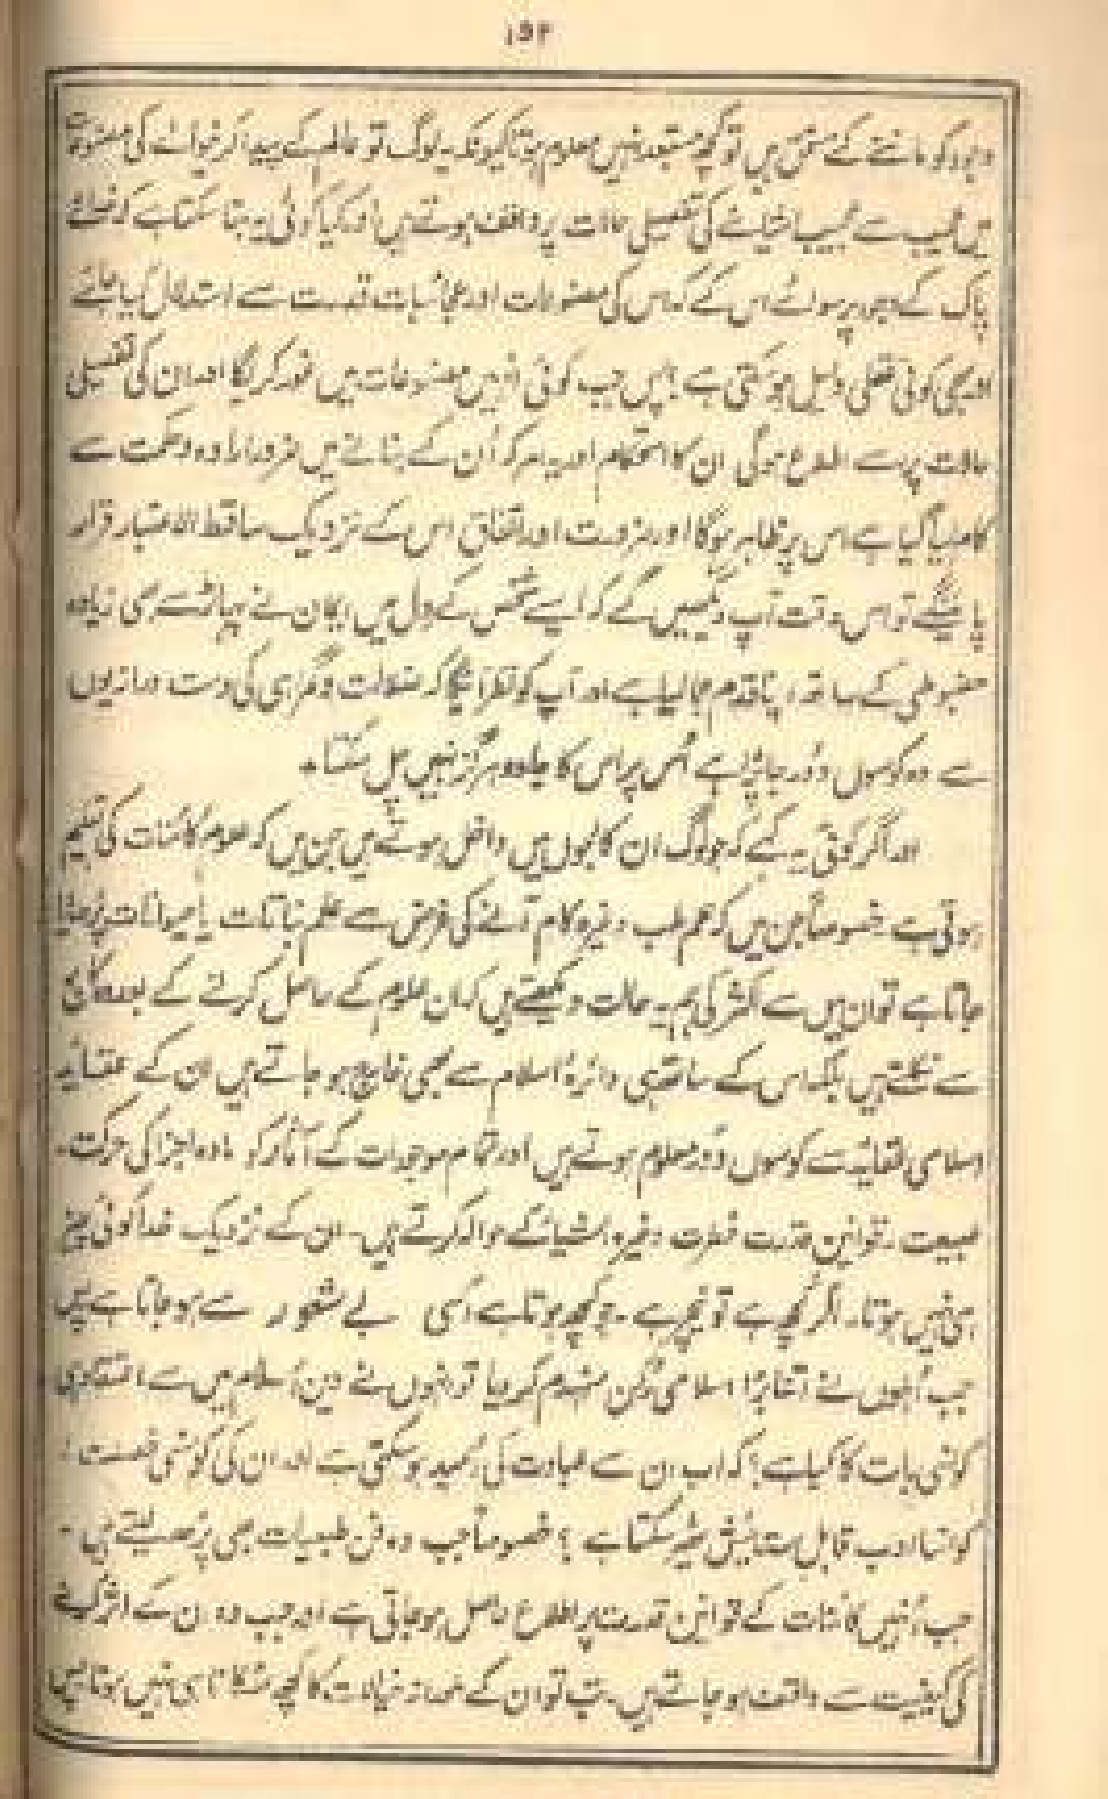 ۱۵۲
وجود کو ماننے کے مستحق ہیں تو کچھ مستبعد نہیں معلوم ہوتا کیونکہ یہ لوگ تو عالم کے پیدا کرنیوالے کی مصنوعات
میں عجیب سے عجیب اشیائے کی تفصیلی حالات پر واقف ہوتے ہیں اور کیا کوئی یہ بتا سکتا ہے کہ خدائے
پاک کے وجود پر سوائے اس کے کہ اس کی مصنوعات اور عجائبات قدرت سے استدلال کیا جائے
اور بھی کوئی عقلی دلیل ہو سکتی ہے؟ پس جب کوئی انہیں مصنوعات میں غور کرے گا اور ان کی تفصیلی
حالات پر اسے اطلاع ہوگی ان کا استحکام اور یہ امر کہ اُن کے بنانے میں ضرور ارادہ و حکمت سے
کام لیا گیا ہے اس پر ظاہر ہوگا اور ضرورت اور اتفاق اس کے نزدیک ساقط الاعتبار قرار
پائینگے تو اس وقت آپ دیکھیں گے کہ ایسے شخص کے دل میں ایمان نے پہاڑ سے بھی زیادہ
مضبوطی کے ساتھ اپنا قدم جما لیا ہے اور آپ کو نظر آئیگا کہ ضلالت و گمراہی کی دست درازیوں
سے وہ کوسوں دُور جا پڑا ہے اُس پر اس کا جادو ہرگز نہیں چل سکتا۔
اور اگر کوئی یہ کہے کہ جو لوگ ان کالجوں میں داخل ہوتے ہیں جن میں کہ علوم کائنات کی تعلیم
ہوتی ہے خصوصاً جن میں کہ علم طب وغیرہ کام آنے کی غرض سے علم نباتات یا حیوانات پڑھایا
جاتا ہے تو ان میں سے اکثر کی ہم یہ حالت دیکھتے ہیں کہ ان علوم کے حاصل کرنے کے بعد کالج
سے نکلتے ہیں بلکہ اس کے ساتھ ہی دائرۂ اسلام سے بھی خارج ہو جاتے ہیں ان کے عقائد
اسلامی عقائد سے کوسوں دُور معلوم ہوتے ہیں اور تمام موجودات کے آثار کو مادہ اجزا کی حرکت۔
طبیعت۔ قوانین قدرت فطرت وغیرہ اشیائے کے حوالہ کرتے ہیں۔ ان کے نزدیک خدا کوئی چیز
ہی نہیں ہوتا۔ اگر کچھ ہے تو نیچر ہے۔ جو کچھ ہوتا ہے اُسی بے شعور سے ہو جاتا ہے پس
جب اُنہوں نے اتنا بڑا اسلامی رُکن منہدم کر دیا تو انہوں نے دین اسلام میں سے اعتقادی
کونسی بات کا کیا ہے؟ کہ اب ان سے عبادت کی اُمید ہو سکتی ہے اور ان کی کونسی خصلت؛
کونسا ادب قابل ستائیش ٹھیر سکتا ہے؟ خصوصاً جب وہ فن طبعیات بھی پڑھ لیتے ہیں۔
جب اُنہیں کائنات کے قوانین قدرت پر اطلاع حاصل ہو جاتی ہے اور جب وہ ان کے اثر کرنے
کی کیفیت سے واقف ہو جاتے ہیں۔ تب تو ان کے خیالات کا کچھ ٹھکانا ہی نہیں ہوتا پس